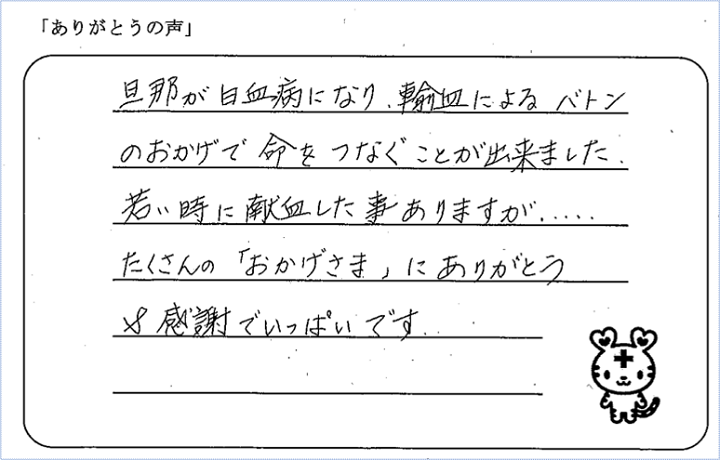 「ありがとうの声」
旦那が白血病になり、輸血によるバトン
のおかげで命をつなぐことが出来ました.
若い時に献血した事ありますが.....
たくさんの「おかげさま」にありがとう
と感謝でいっぱいです..